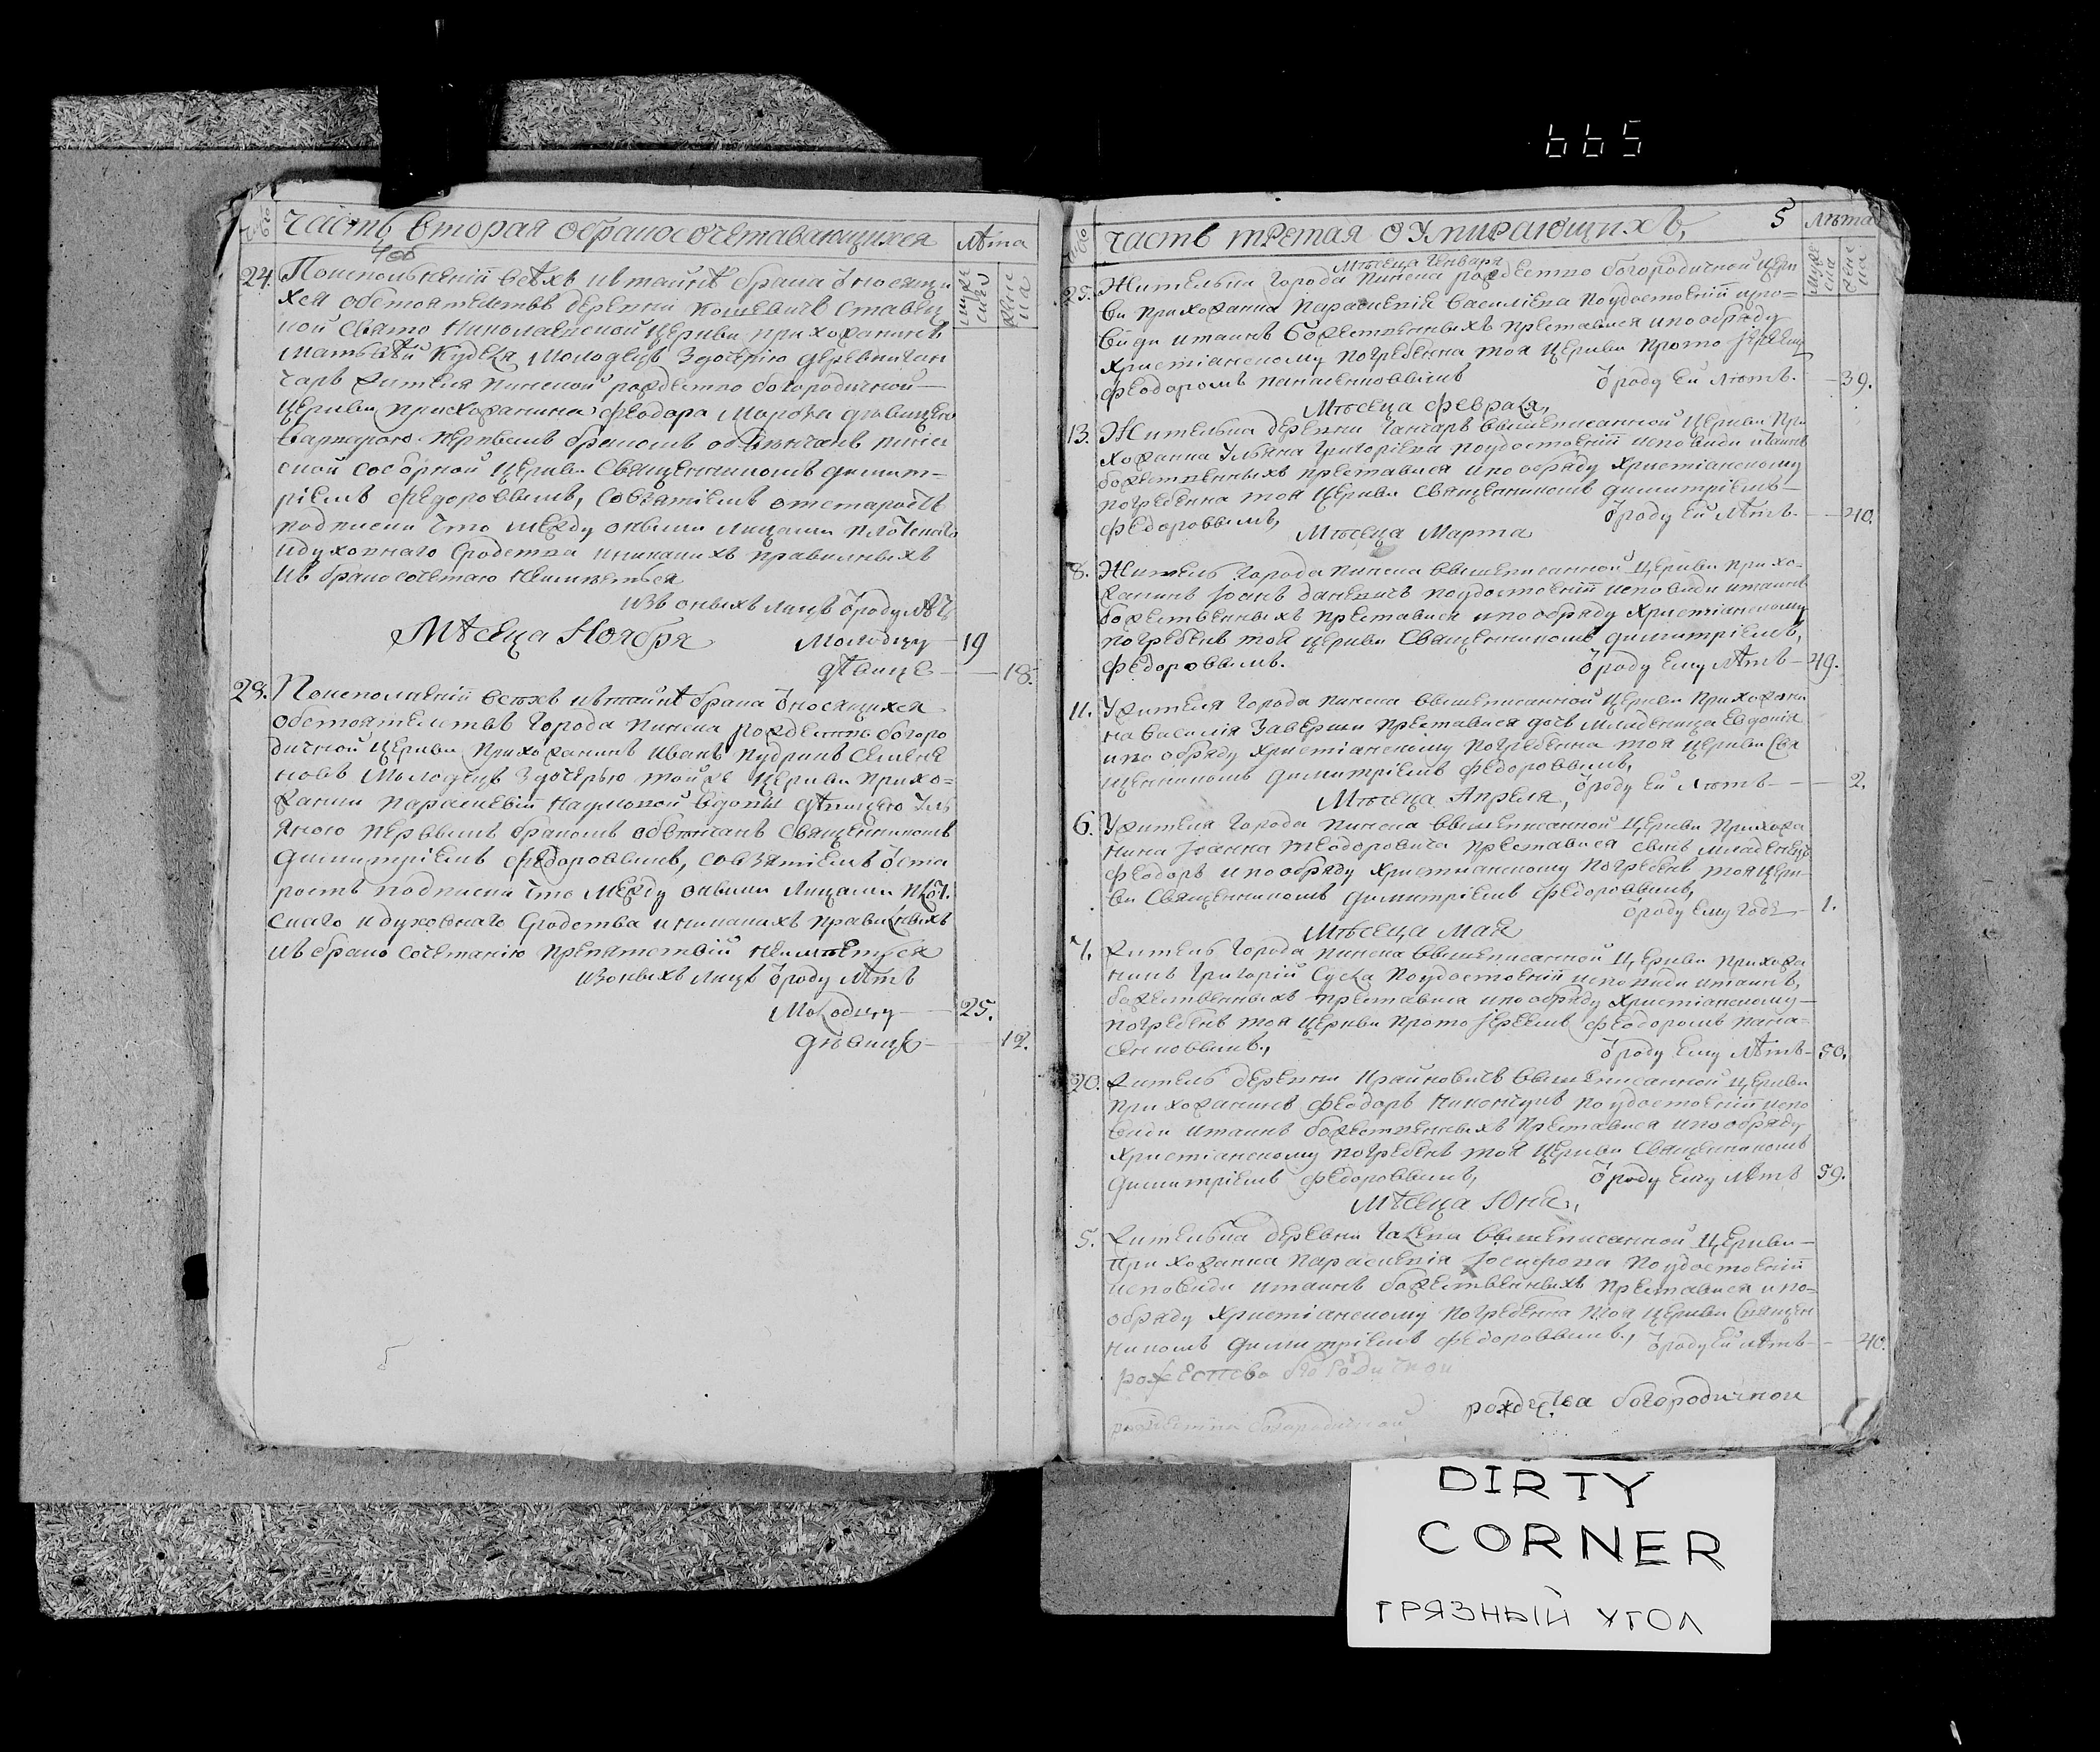 665
Часть вторая обракосочетавающихся
Лѣта
24. По исполненіи всѣхъ къ тайнѣ брака относящи
хся обстоятельствъ деревни Кошевичъ Ставец
кой Свято Николаевской церкви прихожанинъ
Матвѣй Кудела молодецъ здочерію деревни Ган
чаръ жителя пинской рождество богородичной
церкви прихожанина Феодора Мороза дѣвицею
Варварою первымъ бракомъ обвѣнчанъ пинс
ской соборной церкви Священникомъ димит-
ріемъ Федоровымъ, совзятіемъ отстаростъ
подписки что между оными лицами плотскаго
идуховнаго сродства иникакихъ правильныхъ
къ брако сочетаю неимѣется
изъ оныхъ лицъ ѿроду лѣтъ
молодцу 19
дѣвицѣ 18.
Мѣсеца Ноября
29. По исполненіи всѣхъ къ тайнѣ брака ѿносящихся
обстоятельствъ города пинска рождество богоро
дичной церкви прихожанинъ Иванъ Кудринъ Семене
новъ молодецъ здочерью тойже церкви прихо=
жанки Параскевіи Наумовой вдовы дѣвицею Уль
яною первымъ бракомъ обвѣнчанъ Священникомъ
димитріемъ Федоровымъ, совзятіемъ ѿста
ростъ подписки что между оными лицами плот.
скаго идуховнаго сродства иникакихъ правильныхъ
къ брако сочетанію препятствій неимѣется
изоныхъ лицъ ѿроду лѣтъ
молодцу 25.
дѣвицѣ 12.
5
Часть третая оумирающихъ,
5
Лѣта
Мѣсеца Генваря
25. Жителька города пинска рождество богородичной церк
ви прихожанка Параскевія Василіева поудостоеніи испо=
види итаинъ божественныхъ преставися ипообряду
христіанскому погребенна тоя церкви прото іереемъ
Феодоромъ
ѿроду ей лѣтъ. 39.
Мѣсеца февраля,
13. Жителька деревни Ганчаръ вышеписанной церкви при
хожанка Ульяна Григоріева поудостоеніи исповиди итаинъ
божественныхъ преставися ипообряду христіанскому
погребенна тоя церкви священникомъ димитріемъ
Федоровымъ,
ѿроду ей лѣтъ. 40.
Мѣсеца Марта
8. Житель города пинска вышеписанной церкви прихо-
жанинъ Іоанъ поудостоеніи исповиди итаинъ
божественныхъ преставися ипообряду христіанскому
погребенъ тоя церкви священникомъ димитріемъ,
Федоровымъ.
ѿроду ему лѣтъ 49.
11. Ужителя города пинска вышеписанной церкви прихожани
на Василія Заверши преставися дочь младеница Евдокія
ипо обряду христіанскому погребенна тоя церкви Свя
щенникомъ димитріемъ Федоровымъ,
ѿроду ей лѣтъ 2.
Мѣсеца Апреля,
6. Ужителя города пинска вышеписанной церкви прихожа
нина Іоанна Теодоровича преставися сынъ младенецъ
Феодоръ ипообряду христианскому погребенъ тоя церк-
ви Священникомъ димитріемъ Федоровымъ,
ѿроду ему годъ 1.
Мѣсеца Мая
7. Житель города пинска вышеписанной церкви прихожа
нинъ Григорій Суска поудостоеніи исповиди итаинъ,
божественныхъ преставися ипообряду христіанскому
погребенъ тоя церкви прото Іереемъ Феодоромъ
ѿроду ему лѣтъ 50.
20. Житель деревни Крайновичъ вышеписанной церкви
прихожанинъ Феодоръ Никончукъ поудостоеніи испо
види итаинъ божественныхъ преставися ипообряду
христіанскому погребенъ тоя церкви священникомъ
димитріемъ Федоровымъ,
ѿроду ему лѣтъ 59.
Мѣсеца Юна,
5. Жителька деревни Галева вышеписанной церкви
прихожанка Параскевія Іосифова поудостоеніи
исповиди итаинъ божественныхъ преставися ипо=
обряду христіанскому погребенна тоя церкви священ
никомъ димитріемъ Федоровымъ,
ѿроду ей лѣтъ 40.
рожество богородичной
рождества богородичной
рождество богородичной
DIRTY
CORNER
ГРЯЗНЫЙ УГОЛ